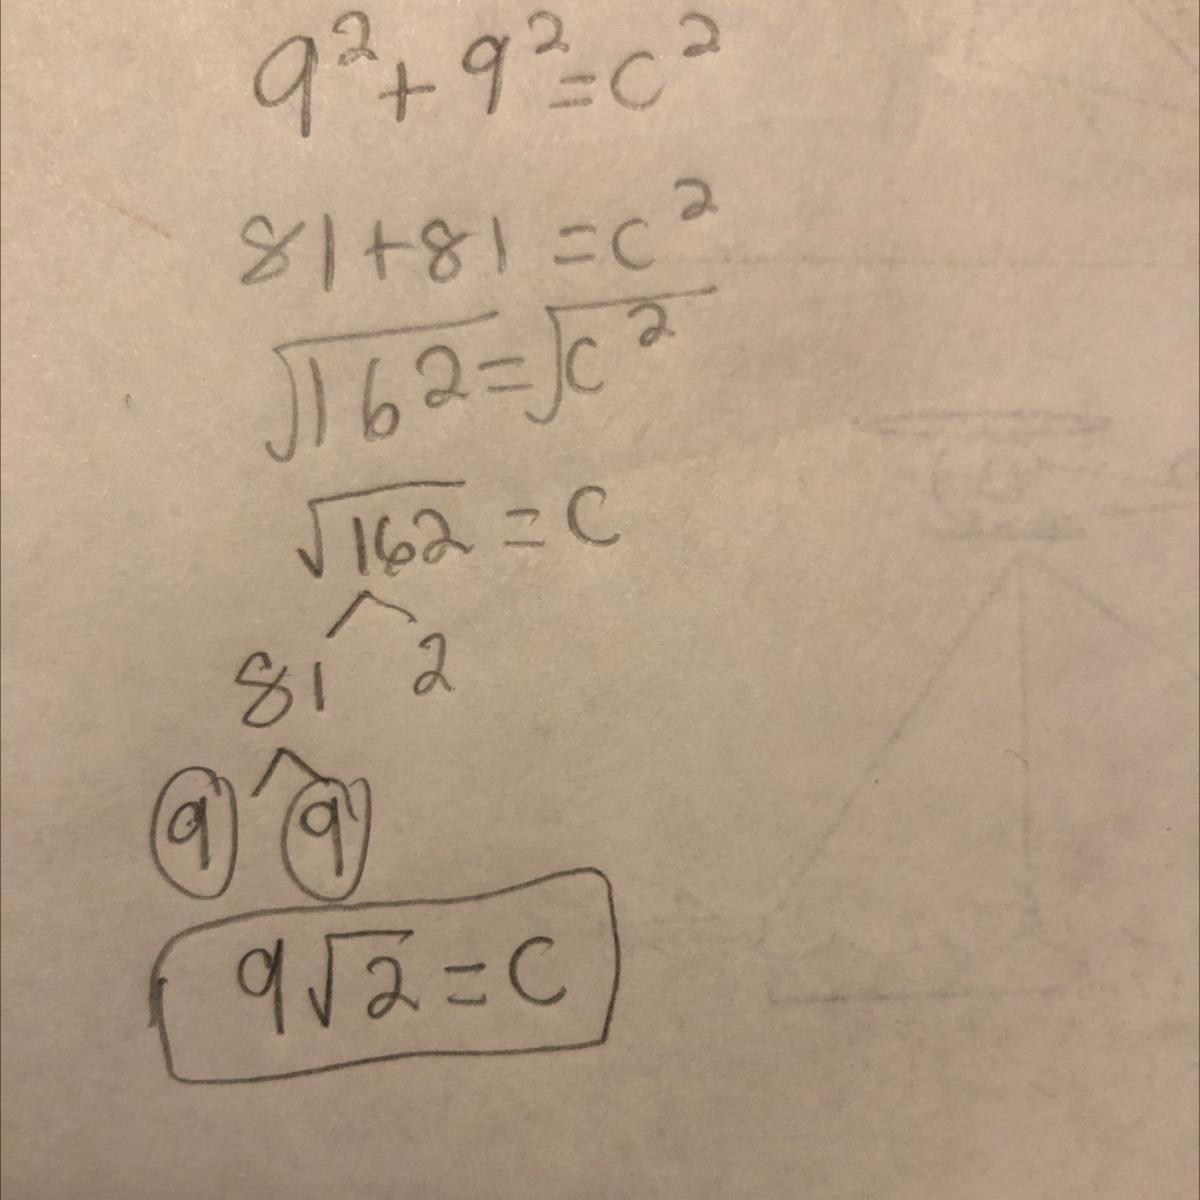 9² + 9² = c²
81 + 81 = c²
√162 = √c²
√162 = c
81 2
9 9
9√2 = c